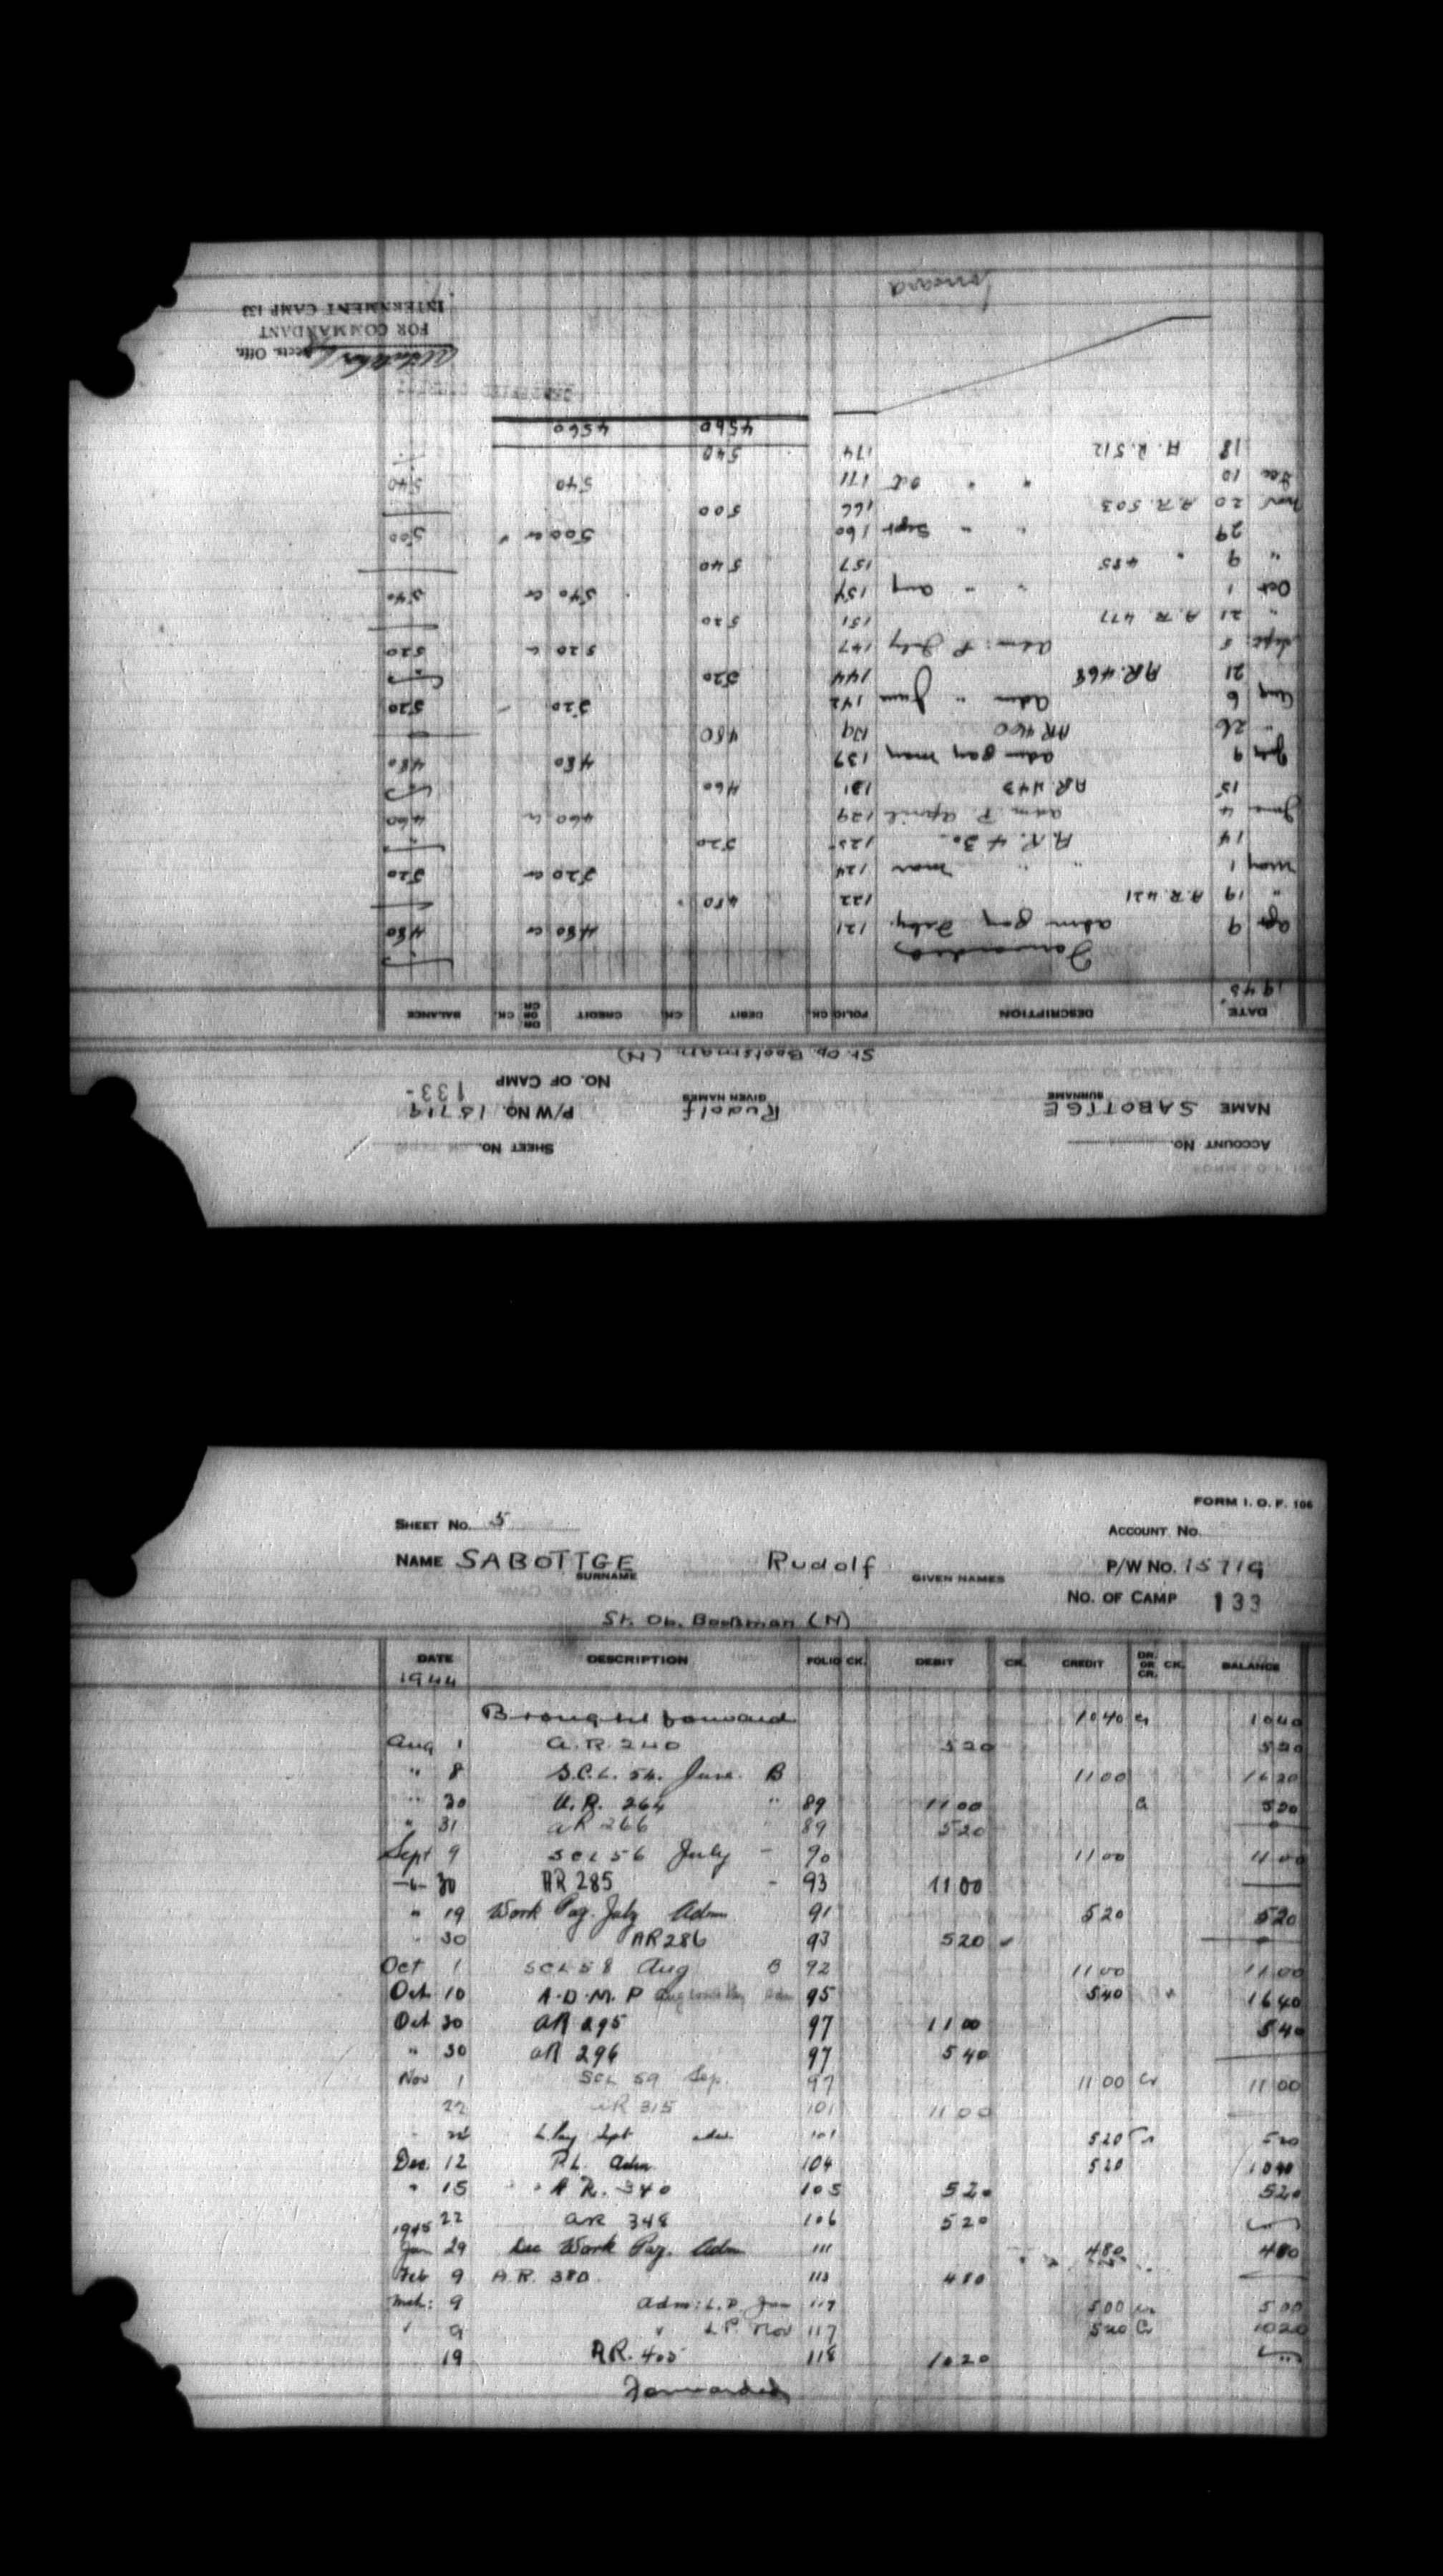 ACCOUNT No. SHEET No.
NAME SABOTTGE Rudolf P/W No. 15719
SURNAME GIVEN NAMES
No. OF CAMP 133-
St. Ob. Bootsman (N)
DATE DESCRIPTION FOLIO CK. DEBIT CK. CREDIT DR. OR CR. CK. BALANCE
1945
Forwarded
Apr 9 adm pay Feby. 121 480 cr 480
" 19 A.R. 421 122 480
May 1 " " mar 124 520 cr 520
14 A.R. 430 125 520
June 4 adm P. april 129 460 cr 460
15 AR. 443 131 460
July 9 adm pay may 137 480 480
" 26 AR 460 139 480
Aug 6 adm " June 142 520 520
21 AR. 468 144 520
Sept. 5 adm: P July 147 520 cr 520
" 21 A.R. 477 151 520
Oct 1 " " aug 154 540 cr 540
" 9 " 485 157 540
29 " " Sept 160 500 cr 500
Nov 20 A.R. 503 166 500
Dec 10 " " oct 171 540 540
18 A.R. 512 174 540
4560 4560
Accts. Offr.
FOR COMMANDANT
INTERNMENT CAMP 133
forward
FORM I. O. F. 106
SHEET No. 5 ACCOUNT No.
NAME SABOTTGE Rudolf P/W No. 15719
SURNAME GIVEN NAMES
No. OF CAMP 133
St. Ob. Bootsman (N)
DATE DESCRIPTION FOLIO CK. DEBIT CK. CREDIT DR. OR CR. CK. BALANCE
1944
Brought forward 1040 cr 1040
Aug 1 A.R. 240 520 520
" 8 S.C.L. 54. June. B 1100 1620
" 30 A.R. 264 " 89 1100 520
" 31 AR 266 89 520
Sept 9 SCL 56 July - 90 1100 1100
30 AR 285 - 93 1100
" 19 Work Pay. July Adm 91 520 520
" 30 AR 286 93 520
Oct 1 SCL 58 Aug B 92 1100 1100
Oct 10 A.D.M. P Aug 95 540 1640
Oct 30 AR 295 97 1100 540
" 30 AR 296 97 540
Nov 1 SCL 59 Sep. 97 1100 Cr 1100
22 AR 315 101 1100
L. Pay Sept adm. 101 520 Cr 520
Dec. 12 P.L. Adm. 104 520 1040
" 15 A.R. 340 105 520 520
22 AR 348 106 520
1945
Jan 29 Dec Work Pay. Adm 111 480 480
Feb 9 A.R. 380. 113 480
Mch: 9 Adm: L.P. Jan 117 500 cr 500
" 9 " L.P. Nov 117 520 Cr 1020
19 AR. 405 118 1020
Forwarded